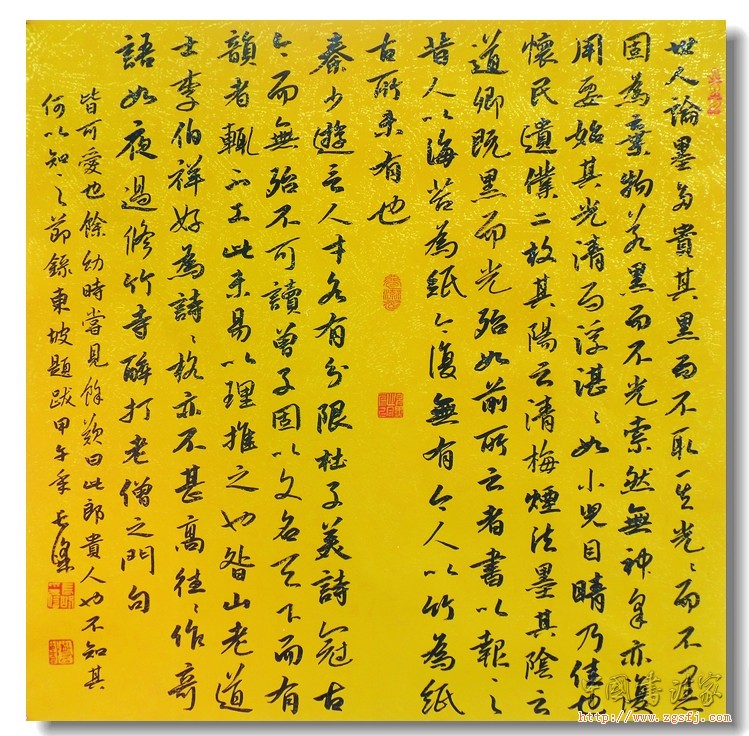 世人論墨多貴其黑而不取其光光々而不黑
固為棄物若黑而不光索然無神采亦復
用要始其光清而浮湛々如小兒目睛乃佳也
懷民遺僕二枚其陽云清梅煙法墨其陰云
道卿既黑而光殆如前所云者書以報之
昔人以海苔為紙今復無有今人以竹為紙
古所未有也
秦少遊言人才各有分限杜子美詩冠古
今而無殆不可讀曾子固以文名天下而有
韻者輒不工此未易以理推之也眉山老道
士李伯祥好為詩々格亦不甚高往々作奇
語如夜過修竹寺醉打老僧之門句
皆可愛也餘幼時嘗見餘歎曰此郎貴人也不知其
何以知之節錄東坡題跋甲午年
中国书法家
http://www.zgsfj.com/